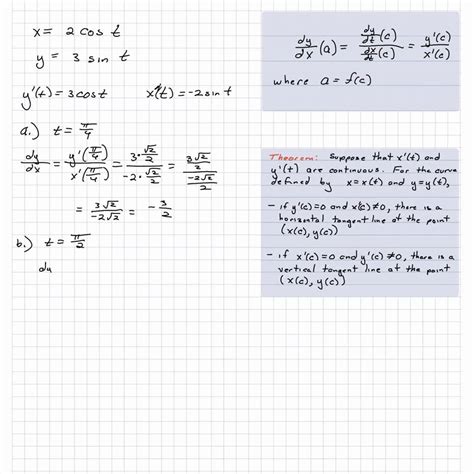 x = 2 cos t
y = 3 sin t
y'(t) = 3cost    x'(t) = -2sin t
a.) t = π/4
dy/dx = y'(π/4)/x'(π/4) = (3·√2/2)/(-2·√2/2) = (3√2/2)/(-2√2/2)
= 3√2/-2√2 = -3/2
b.) t = π/2
dy
dy/dx (a) = (dy/dt (c))/(dx/dt (c)) = y'(c)/x'(c)
where a = f(c)
Theorem: Suppose that x'(t) and
y'(t) are continuous. For the curve
defined by x=x(t) and y=y(t),
- if y'(c)=0 and x'(c)≠0, there is a
horizontal tangent line at the point
(x(c), y(c))
- if x'(c)=0 and y'(c)≠0, there is a
vertical tangent line at the point
(x(c), y(c))